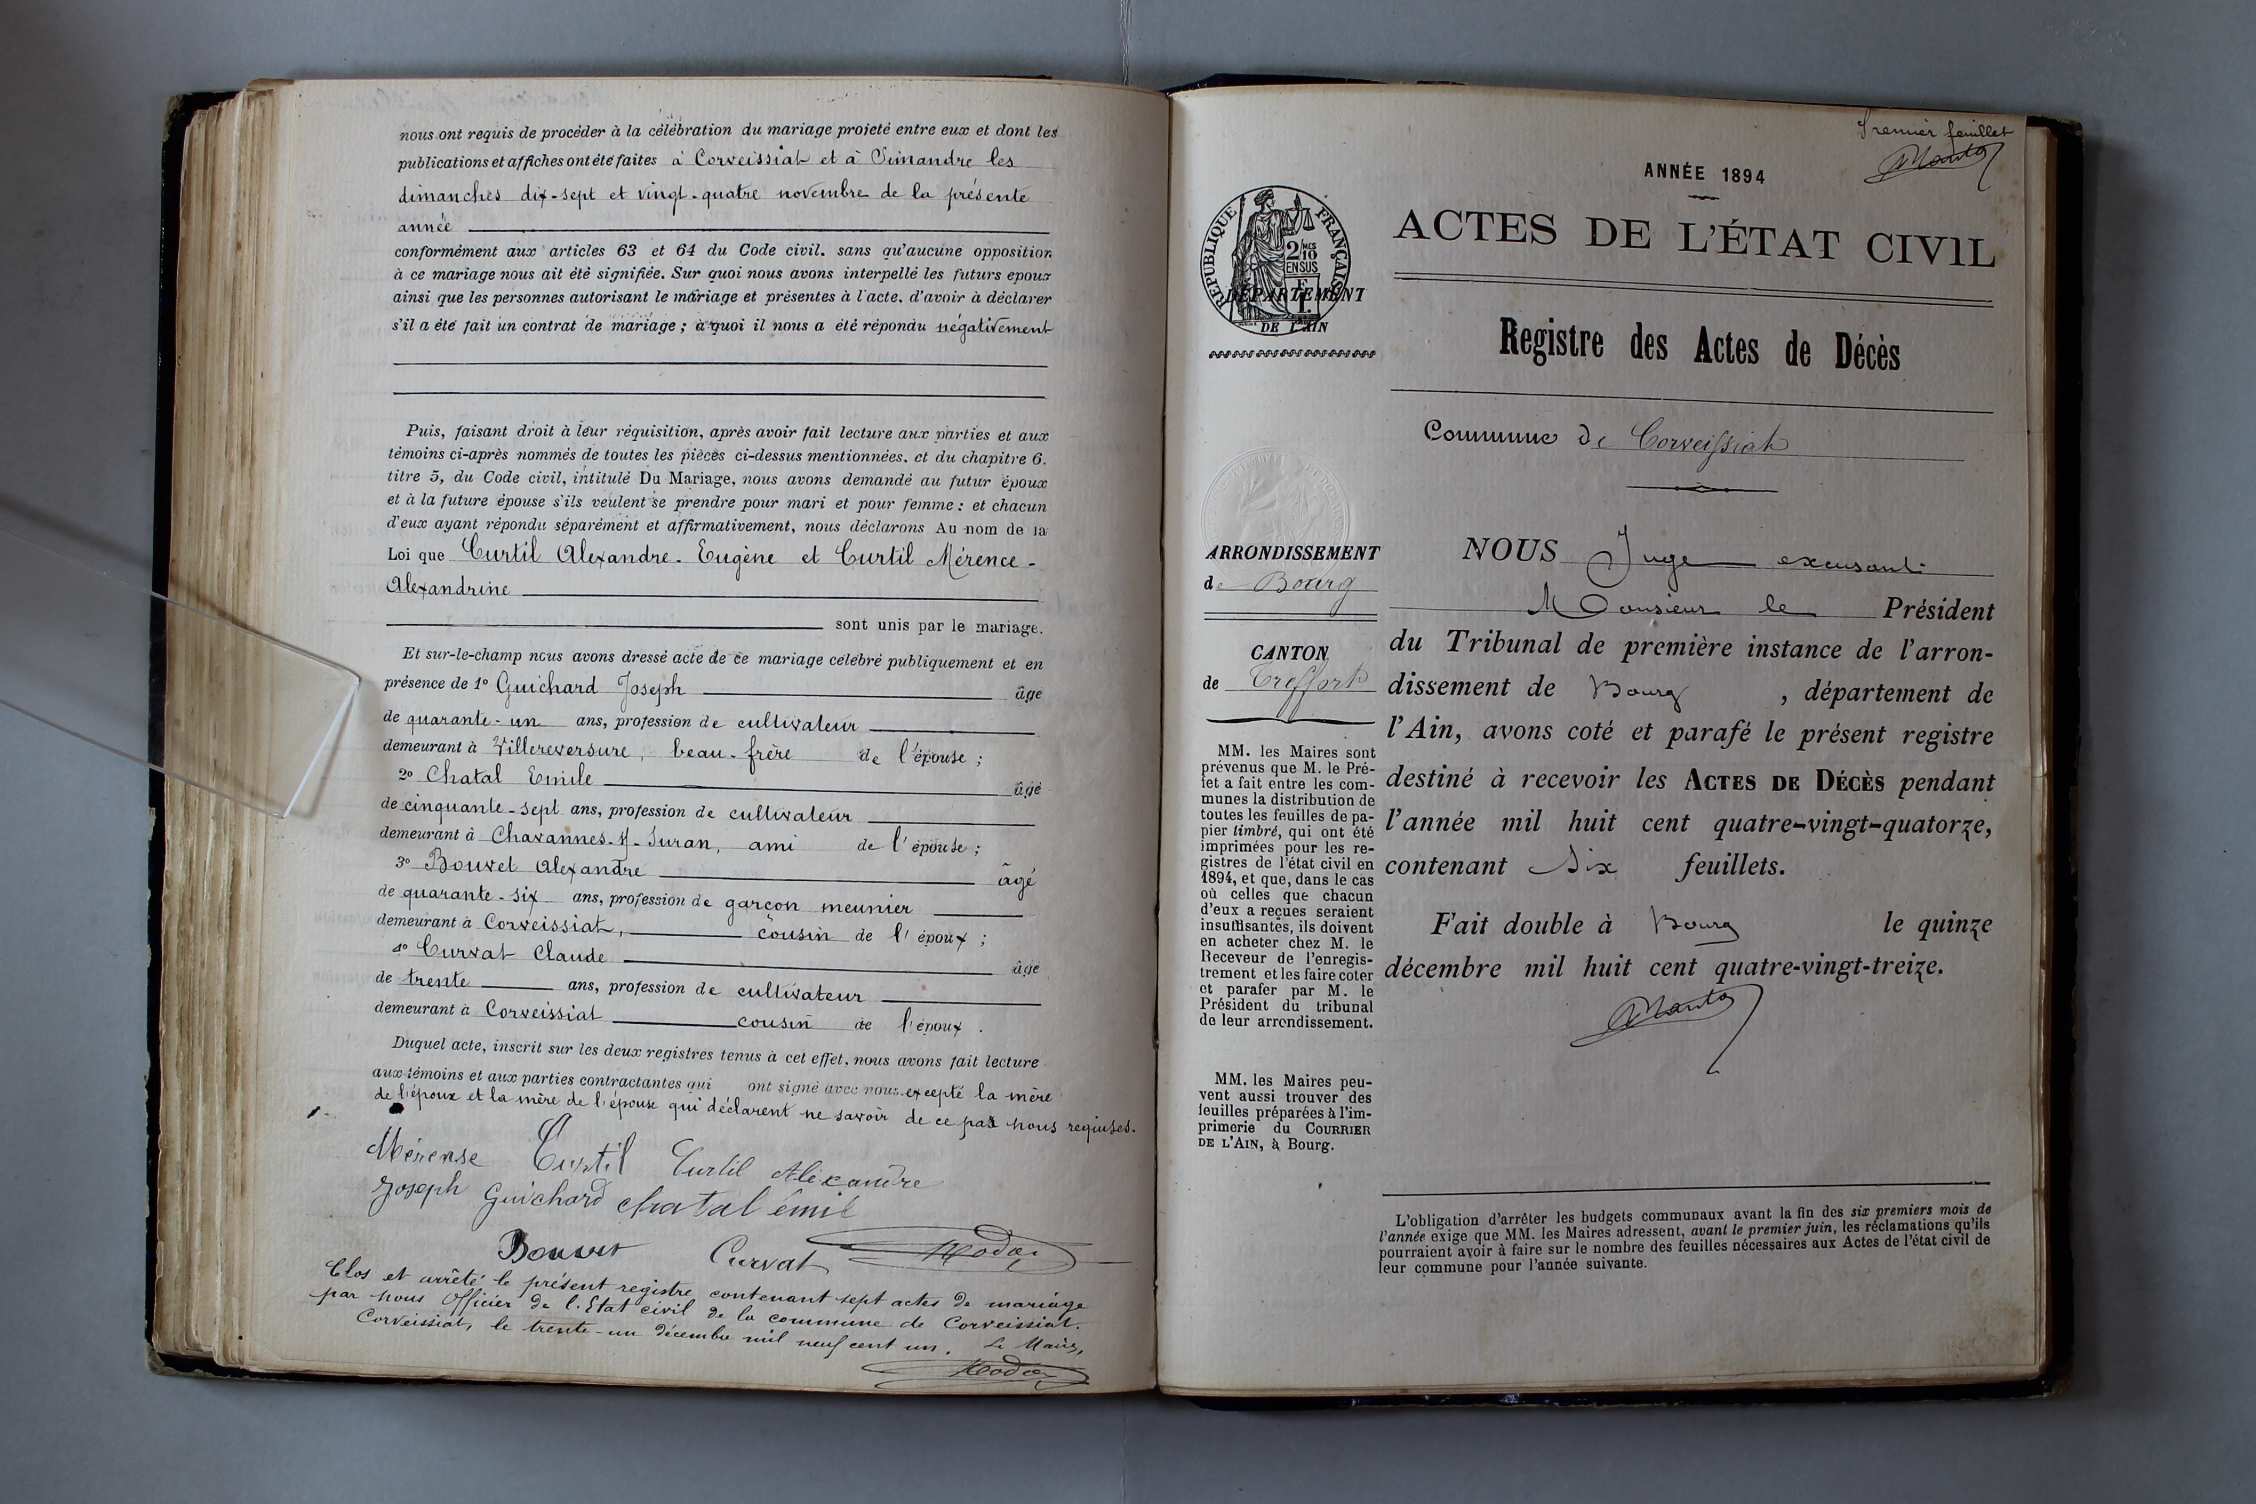 nous ont requis de procéder à la célébration du mariage projeté entre eux et dont les
publications et affiches ont été faites à Corveissiat et à Simandre les
dimanches dix-sept et vingt-quatre novembre de la présente
année
conformément aux articles 63 et 64 du Code civil. sans qu'aucune opposition
à ce mariage nous ait été signifiée. Sur quoi nous avons interpellé les futurs époux
ainsi que les personnes autorisant le mariage et présentes à l'acte. d'avoir à déclarer
s'il a été fait un contrat de mariage ; à quoi il nous a été répondu négativement
Puis, faisant droit à leur réquisition, après avoir fait lecture aux parties et aux
témoins ci-après nommés de toutes les pièces ci-dessus mentionnées. et du chapitre 6.
titre 5, du Code civil, intitulé Du Mariage, nous avons demandé au futur époux
et à la future épouse s'ils veulent se prendre pour mari et pour femme : et chacun
d'eux ayant répondu séparément et affirmativement, nous déclarons Au nom de la
Loi que Curtil Alexandre-Eugène et Curtil Mérence-
Alexandrine
sont unis par le mariage.
Et sur-le-champ nous avons dressé acte de ce mariage célébré publiquement et en
présence de 1° Guichard Joseph âgé
de quarante-un ans, profession de cultivateur
demeurant à Villereversure, beau-frère de l'épouse ;
2° Chatal Emile âgé
de cinquante-sept ans, profession de cultivateur
demeurant à Chavannes-s/-Suran, ami de l'épouse ;
3° Bouvet Alexandre âgé
de quarante-six ans, profession de garçon meunier
demeurant à Corveissiat, cousin de l'époux ;
4° Curvat Claude âgé
de trente ans, profession de cultivateur
demeurant à Corveissiat cousin de l'époux.
Duquel acte, inscrit sur les deux registres tenus à cet effet, nous avons fait lecture
aux témoins et aux parties contractantes qui ont signé avec nous excepté la mère
de l'époux et la mère de l'épouse qui déclarent ne savoir de ce par nous requises.
Mérense Curtil Curtil Alexandre
Joseph Guichard chatal émile
Bouvet Curvat
Clos et arrêté le présent registre contenant sept actes de mariage
par nous Officier de l'Etat civil de la commune de Corveissiat.
Corveissiat, le trente-un décembre mil neuf cent un. Le Maire,
Premier feuillet
ANNÉE 1894
ACTES DE L'ÉTAT CIVIL
RÉPUBLIQUE FRANÇAISE
2/10 MES
EN SUS
DÉPARTEMENT
DE L'AIN
Registre des Actes de Décès
Commune de Corveissiat
ARRONDISSEMENT
de Bourg
CANTON
de Treffort
MM. les Maires sont
prévenus que M. le Pré-
fet a fait entre les com-
munes la distribution de
toutes les feuilles de pa-
pier timbré, qui ont été
imprimées pour les re-
gistres de l'état civil en
1894, et que, dans le cas
où celles que chacun
d'eux a reçues seraient
insuffisantes, ils doivent
en acheter chez M. le
Receveur de l'enregis-
trement et les faire coter
et parafer par M. le
Président du tribunal
de leur arrondissement.
MM. les Maires peu-
vent aussi trouver des
feuilles préparées à l'im-
primerie du COURRIER
DE L'AIN, à Bourg.
NOUS Juge excusant
Monsieur le Président
du Tribunal de première instance de l'arron-
dissement de Bourg, département de
l'Ain, avons coté et parafé le présent registre
destiné à recevoir les ACTES DE DÉCÈS pendant
l'année mil huit cent quatre-vingt-quatorze,
contenant Six feuillets.
Fait double à Bourg le quinze
décembre mil huit cent quatre-vingt-treize.
L'obligation d'arrêter les budgets communaux avant la fin des six premiers mois de
l'année exige que MM. les Maires adressent, avant le premier juin, les réclamations qu'ils
pourraient avoir à faire sur le nombre des feuilles nécessaires aux Actes de l'état civil de
leur commune pour l'année suivante.